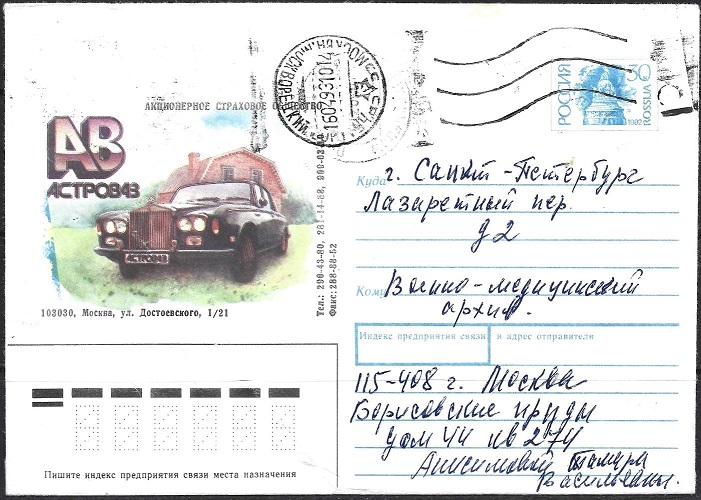 АКЦИОНЕРНОЕ СТРАХОВОЕ ОБЩЕСТВО
АВ
АСТРОВАЗ
АСТРОВАЗ
Тел.: 290-43-80, 281-14-88,
Факс: 288-88-52
103030, Москва, ул. Достоевского, 1/21
16049310
РОССИЯ
30
1992 ROSSIJA
Куда г. Санкт-Петербург
Лазаретный пер.
д 2
Кому Военно-медицинский
архив.
Индекс предприятия связи и адрес отправителя
115-408 г. Москва
Борисовские пруды
дом 44 кв 274
Анисимовой Тамары
Васильевны.
Пишите индекс предприятия связи места назначения